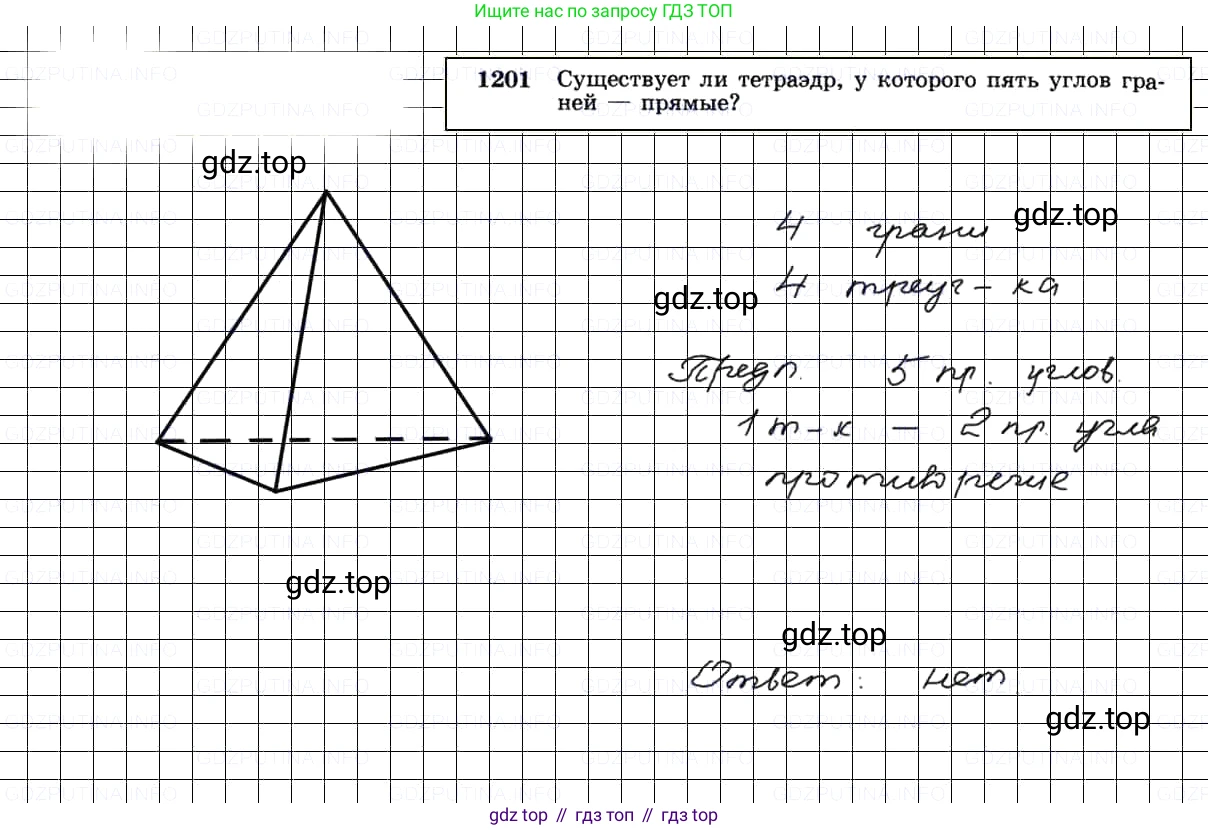 Ищите нас по запросу ГДЗ ТОП
1201 Существует ли тетраэдр, у которого пять углов гра-
ней — прямые?
gdz.top
4 грани
gdz.top
4 треуг-ка
gdz.top
Предп. 5 пр. углов.
1 т-к — 2 пр. угла
противоречие
gdz.top
gdz.top
Ответ: нет
gdz.top
gdz top // гдз топ // гдз top